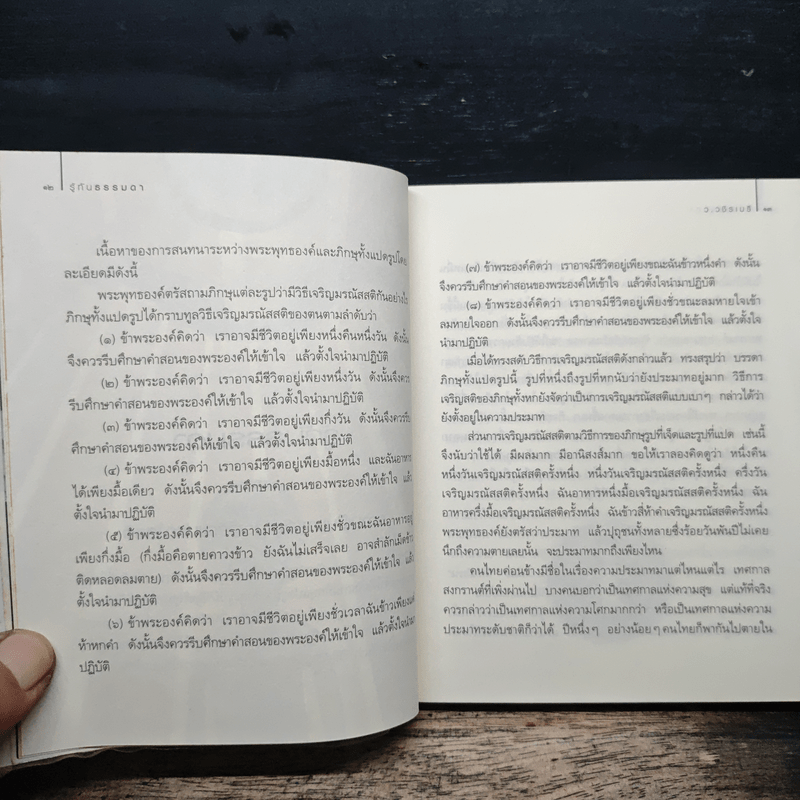 ๑๒ รู้ทันธรรมดา
เนื้อหาของการสนทนาระหว่างพระพุทธองค์และภิกษุทั้งแปดรูปโดย
ละเอียดมีดังนี้
พระพุทธองค์ตรัสถามภิกษุแต่ละรูปว่ามีวิธีเจริญมรณัสสติกันอย่างไร
ภิกษุทั้งแปดรูปได้กราบทูลวิธีเจริญมรณัสสติของตนตามลำดับว่า
(๑) ข้าพระองค์คิดว่า เราอาจมีชีวิตอยู่เพียงหนึ่งคืนหนึ่งวัน ดังนั้น
จึงควรรีบศึกษาคำสอนของพระองค์ให้เข้าใจ แล้วตั้งใจนำมาปฏิบัติ
(๒) ข้าพระองค์คิดว่า เราอาจมีชีวิตอยู่เพียงหนึ่งวัน ดังนั้นจึงควร
รีบศึกษาคำสอนของพระองค์ให้เข้าใจ แล้วตั้งใจนำมาปฏิบัติ
(๓) ข้าพระองค์คิดว่า เราอาจมีชีวิตอยู่เพียงกึ่งวัน ดังนั้นจึงควรรีบ
ศึกษาคำสอนของพระองค์ให้เข้าใจ แล้วตั้งใจนำมาปฏิบัติ
(๔) ข้าพระองค์คิดว่า เราอาจมีชีวิตอยู่เพียงมื้อหนึ่ง และฉันอาหาร
ได้เพียงมื้อเดียว ดังนั้นจึงควรรีบศึกษาคำสอนของพระองค์ให้เข้าใจ แล้ว
ตั้งใจนำมาปฏิบัติ
(๕) ข้าพระองค์คิดว่า เราอาจมีชีวิตอยู่เพียงชั่วขณะฉันอาหารอยู่
เพียงกึ่งมื้อ (กึ่งมื้อคือตายคาวงข้าว ยังฉันไม่เสร็จเลย อาจสำลักเม็ดข้าว
ติดหลอดลมตาย) ดังนั้นจึงควรรีบศึกษาคำสอนของพระองค์ให้เข้าใจ แล้ว
ตั้งใจนำมาปฏิบัติ
(๖) ข้าพระองค์คิดว่า เราอาจมีชีวิตอยู่เพียงชั่วเวลาฉันข้าวเพียงแค่
ห้าหกคำ ดังนั้นจึงควรรีบศึกษาคำสอนของพระองค์ให้เข้าใจ แล้วตั้งใจนำมา
ปฏิบัติ
ว.วชิรเมธี ๑๓
(๗) ข้าพระองค์คิดว่า เราอาจมีชีวิตอยู่เพียงขณะฉันข้าวหนึ่งคำ ดังนั้น
จึงควรรีบศึกษาคำสอนของพระองค์ให้เข้าใจ แล้วตั้งใจนำมาปฏิบัติ
(๘) ข้าพระองค์คิดว่า เราอาจมีชีวิตอยู่เพียงชั่วขณะลมหายใจเข้า
ลมหายใจออก ดังนั้นจึงควรรีบศึกษาคำสอนของพระองค์ให้เข้าใจ แล้วตั้งใจ
นำมาปฏิบัติ
เมื่อได้ทรงสดับวิธีการเจริญมรณัสสติดังกล่าวแล้ว ทรงสรุปว่า บรรดา
ภิกษุทั้งแปดรูปนี้ รูปที่หนึ่งถึงรูปที่หกนับว่ายังประมาทอยู่มาก วิธีการ
เจริญสติของภิกษุทั้งหกยังจัดว่าเป็นการเจริญมรณัสสติแบบเบาๆ กล่าวได้ว่า
ยังตั้งอยู่ในความประมาท
ส่วนการเจริญมรณัสสติตามวิธีการของภิกษุรูปที่เจ็ดและรูปที่แปด เช่นนี้
จึงนับว่าใช้ได้ มีผลมาก มีอานิสงส์มาก ขอให้เราลองคิดดูว่า หนึ่งคืน
หนึ่งวันเจริญมรณัสสติครั้งหนึ่ง หนึ่งวันเจริญมรณัสสติครั้งหนึ่ง ครึ่งวัน
เจริญมรณัสสติครั้งหนึ่ง ฉันอาหารหนึ่งมื้อเจริญมรณัสสติครั้งหนึ่ง ฉัน
อาหารครึ่งมื้อเจริญมรณัสสติครั้งหนึ่ง ฉันข้าวสี่ห้าคำเจริญมรณัสสติครั้งหนึ่ง
พระพุทธองค์ยังตรัสว่าประมาท แล้วปุถุชนทั้งหลายซึ่งร้อยวันพันปีไม่เคย
นึกถึงความตายเลยนั้น จะประมาทมากถึงเพียงไหน
คนไทยค่อนข้างมีชื่อในเรื่องความประมาทมาแต่ไหนแต่ไร เทศกาล
สงกรานต์ที่เพิ่งผ่านไป บางคนบอกว่าเป็นเทศกาลแห่งความสุข แต่แท้ที่จริง
ควรกล่าวว่าเป็นเทศกาลแห่งความโศกมากกว่า หรือเป็นเทศกาลแห่งความ
ประมาทระดับชาติก็ว่าได้ ปีหนึ่งๆ อย่างน้อยๆ คนไทยก็พากันไปตายใน